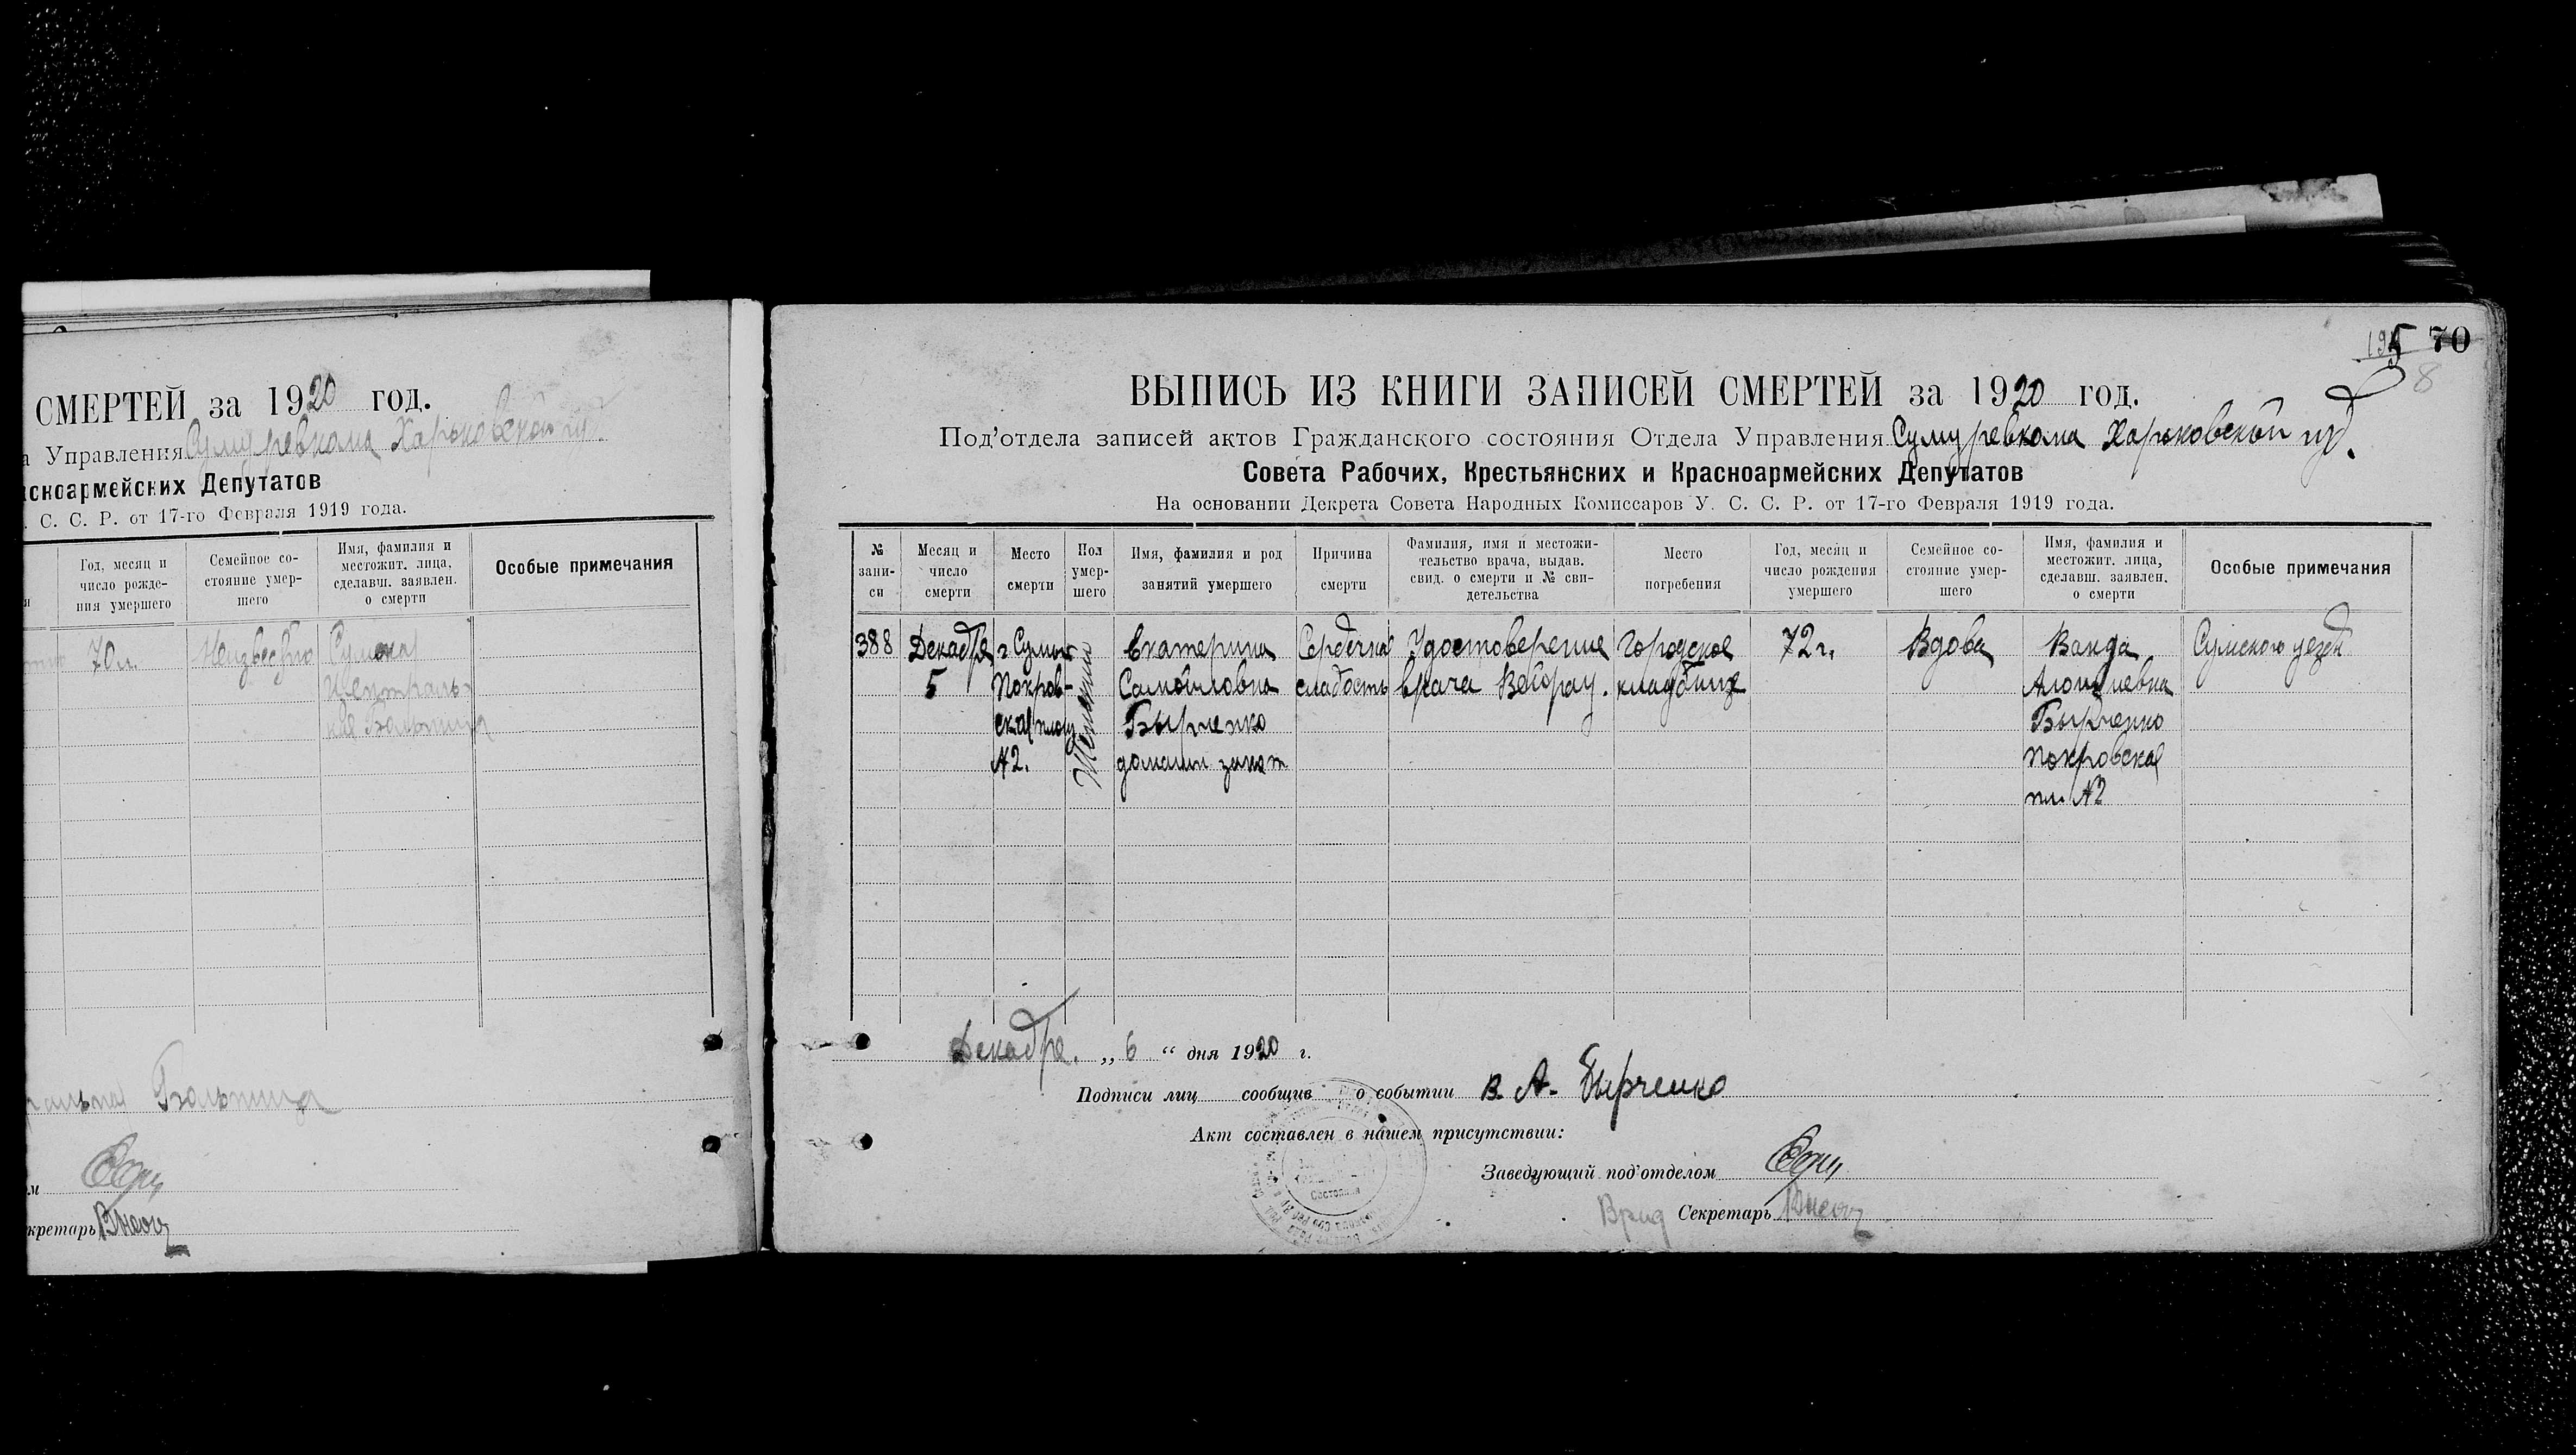 СМЕРТЕЙ за 1920 год.
Управления Сумуревкома Харьковской гу.
сноармейских Депутатов
. С. С. Р. от 17-го Февраля 1919 года.
Год, месяц и
число рожде-
ния умершего
Семейное со-
стояние умер-
шего
Имя, фамилия и
местожит. лица,
сделавш. заявлен.
о смерти
Особые примечания
70 л.
Неизвестно
Сумская
Централь-
ная Больница
ральная Больница
кретарь
70
8
ВЫПИСЬ ИЗ КНИГИ ЗАПИСЕЙ СМЕРТЕЙ за 1920 год.
Под'отдела записей актов Гражданского состояния Отдела Управления Сумуревкома Харьковской
Совета Рабочих, Крестьянских и Красноармейских Депутатов
На основании Декрета Совета Народных Комиссаров У. С. С. Р. от 17-го Февраля 1919 года.
№
запи-
си
Месяц и
число
смерти
Место
смерти
Пол
умер-
шего
Имя, фамилия и род
занятий умершего
Причина
смерти
Фамилия, имя и местожи-
тельство врача, выдав.
свид. о смерти и № сви-
детельства
Место
погребения
Год, месяц и
число рождения
умершего
Семейное со-
стояние умер-
шего
Имя, фамилия и
местожит. лица,
сделавш. заявлен.
о смерти
Особые примечания
388
Декабря
5
г Сумы
Покров-
ская площ
№2.
Женский
Екатерина
Самойловна
Бырченко
домашн занят
Сердечная
слабость
Удостоверение
врача
Городское
кладбище
72 г.
Вдова
Ванда
Бырченко
Покровская
пл. №2
Сумского уезда
Декабря. „ 6 “ дня 1920 г.
Подписи лиц сообщив о событии В. А. Бырченко
Акт составлен в нашем присутствии:
Заведующий под'отделом
Врид Секретарь
Состояния